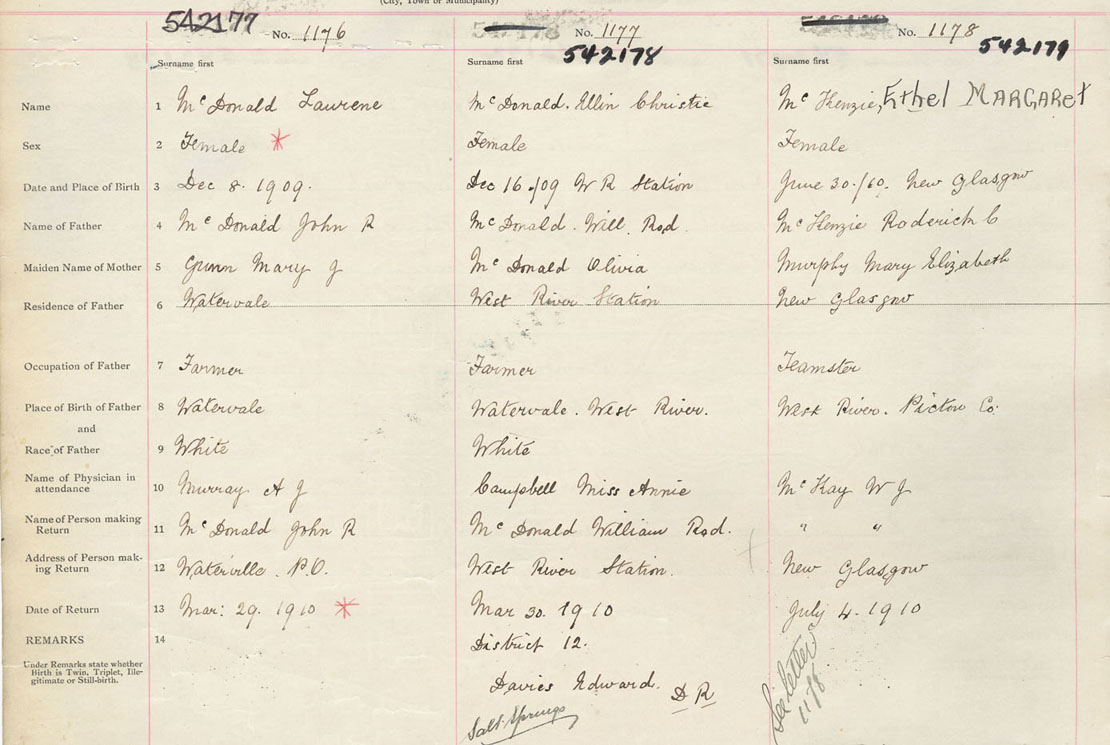 (City, Town or Municipality)
542177 No. 1176 No. 1177 No. 1178
542178 542179
Surname first Surname first Surname first
Name 1 McDonald Laurene McDonald. Ellin Christie McKenzie, Ethel MARGARet
Sex 2 Female * Female Female
Date and Place of Birth 3 Dec 8. 1909. Dec 16./09 W R Station June 30./60. New Glasgow
Name of Father 4 McDonald John R McDonald. Will. Rod. McKenzie Roderick C
Maiden Name of Mother 5 Gunn Mary J McDonald Olivia Murphy Mary Elizabeth
Residence of Father 6 Watervale West River Station New Glasgow
Occupation of Father 7 Farmer Farmer Teamster
Place of Birth of Father 8 Watervale Watervale. West River. West River. Pictou Co.
and
Race of Father 9 White White
Name of Physician in
attendance 10 Murray A J Campbell Miss Annie McKay W J
Name of Person making
Return 11 McDonald John R McDonald William Rod. " "
Address of Person mak-
ing Return 12 Waterville. P.O. West River Station. New Glasgow
Date of Return 13 Mar: 29. 1910 * Mar 30. 1910 July 4. 1910
REMARKS 14 District 12.
Under Remarks state whether
Birth is Twin, Triplet, Ille-
gitimate or Still-birth.
Davies Edward. D R
Salt Springs
See letter
1178